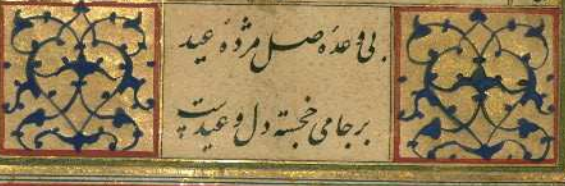 بی وعدهٔ وصل مژدهٔ عید
بر جامی خجسته دل وعیدست